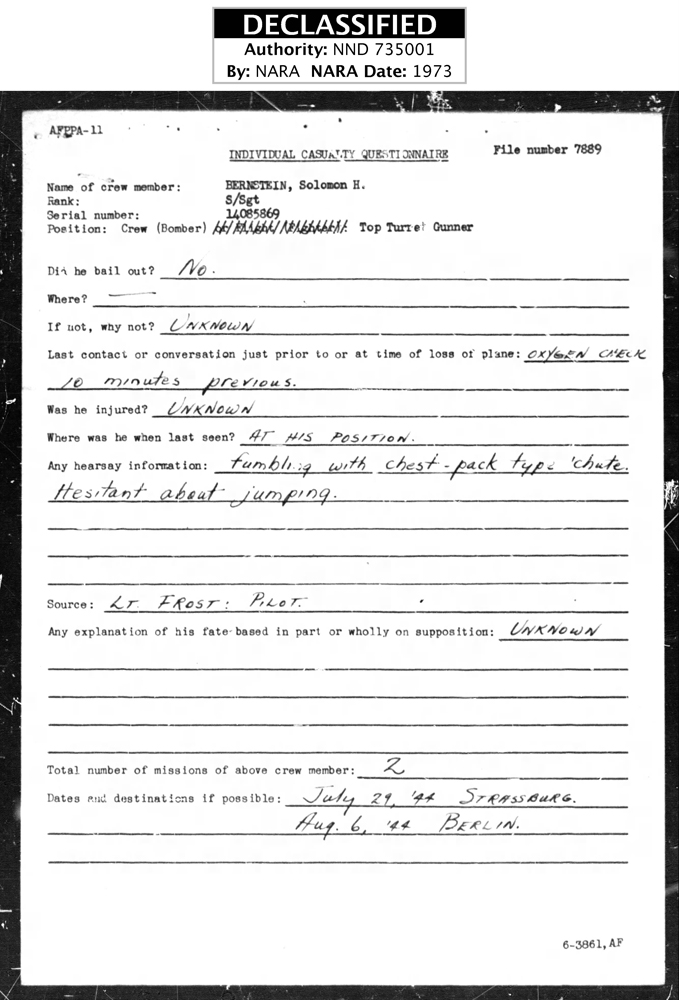 DECLASSIFIED
Authority: NND 735001
By: NARA NARA Date: 1973
AFPPA-11
INDIVIDUAL CASUALTY QUESTIONNAIRE
File number 7889
Name of crew member: BERNSTEIN, Solomon H.
Rank: S/Sgt
Serial number: 14085869
Position: Crew (Bomber) Top Turret Gunner
Did he bail out? No.
Where? —
If not, why not? UNKNOWN
Last contact or conversation just prior to or at time of loss of plane: OXYGEN CHECK
10 minutes previous.
Was he injured? UNKNOWN
Where was he when last seen? AT HIS POSITION.
Any hearsay information: fumbling with chest-pack type 'chute.
Hesitant about jumping.
Source: LT. FROST: PILOT.
Any explanation of his fate based in part or wholly on supposition: UNKNOWN
Total number of missions of above crew member: 2
Dates and destinations if possible: July 29, '44 STRASSBURG.
Aug. 6, '44 BERLIN.
6-3861,AF